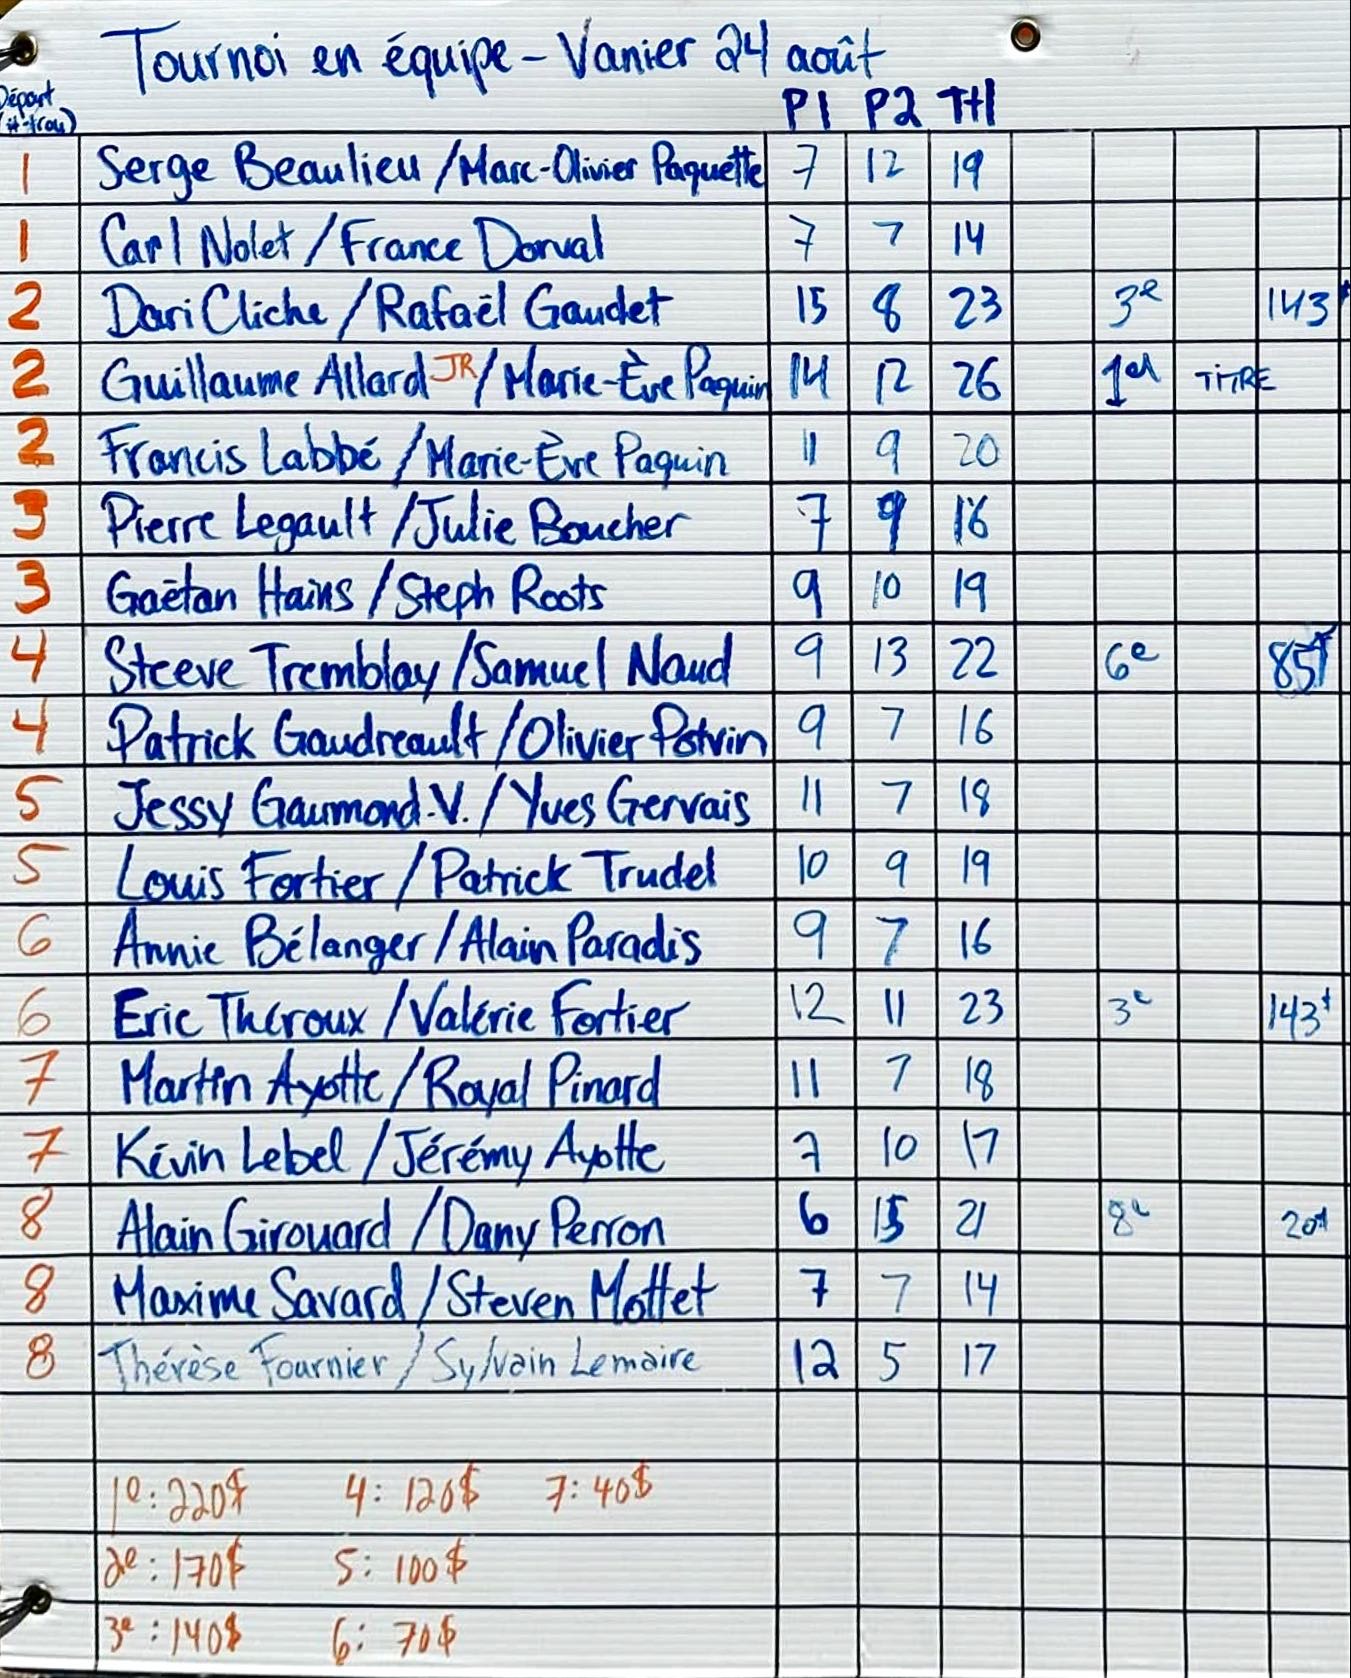 Tournoi en équipe - Vanier 24 août
Départ (#-trou) P1 P2 Ttl
1 Serge Beaulieu / Marc-Olivier Paquette 7 12 19
1 Carl Nolet / France Dorval 7 7 14
2 Dari Cliche / Rafaël Gaudet 15 8 23 3e 143
2 Guillaume Allard JR / Marie-Ève Paquin 14 12 26 1er TITRE
2 Francis Labbé / Marie-Ève Paquin 11 9 20
3 Pierre Legault / Julie Boucher 7 9 16
3 Gaëtan Hains / Steph Roots 9 10 19
4 Steeve Tremblay / Samuel Naud 9 13 22 6e 85$
4 Patrick Gaudreault / Olivier Potvin 9 7 16
5 Jessy Gaumond.V. / Yves Gervais 11 7 18
5 Louis Fortier / Patrick Trudel 10 9 19
6 Annie Bélanger / Alain Paradis 9 7 16
6 Eric Théroux / Valérie Fortier 12 11 23 3e 143$
7 Martin Ayotte / Royal Pinard 11 7 18
7 Kévin Lebel / Jérémy Ayotte 7 10 17
8 Alain Girouard / Dany Perron 6 15 21 8e 20$
8 Maxime Savard / Steven Mottet 7 7 14
8 Thérèse Fournier / Sylvain Lemaire 12 5 17
1e: 220$ 4: 120$ 7: 40$
2e: 170$ 5: 100$
3e: 140$ 6: 70$